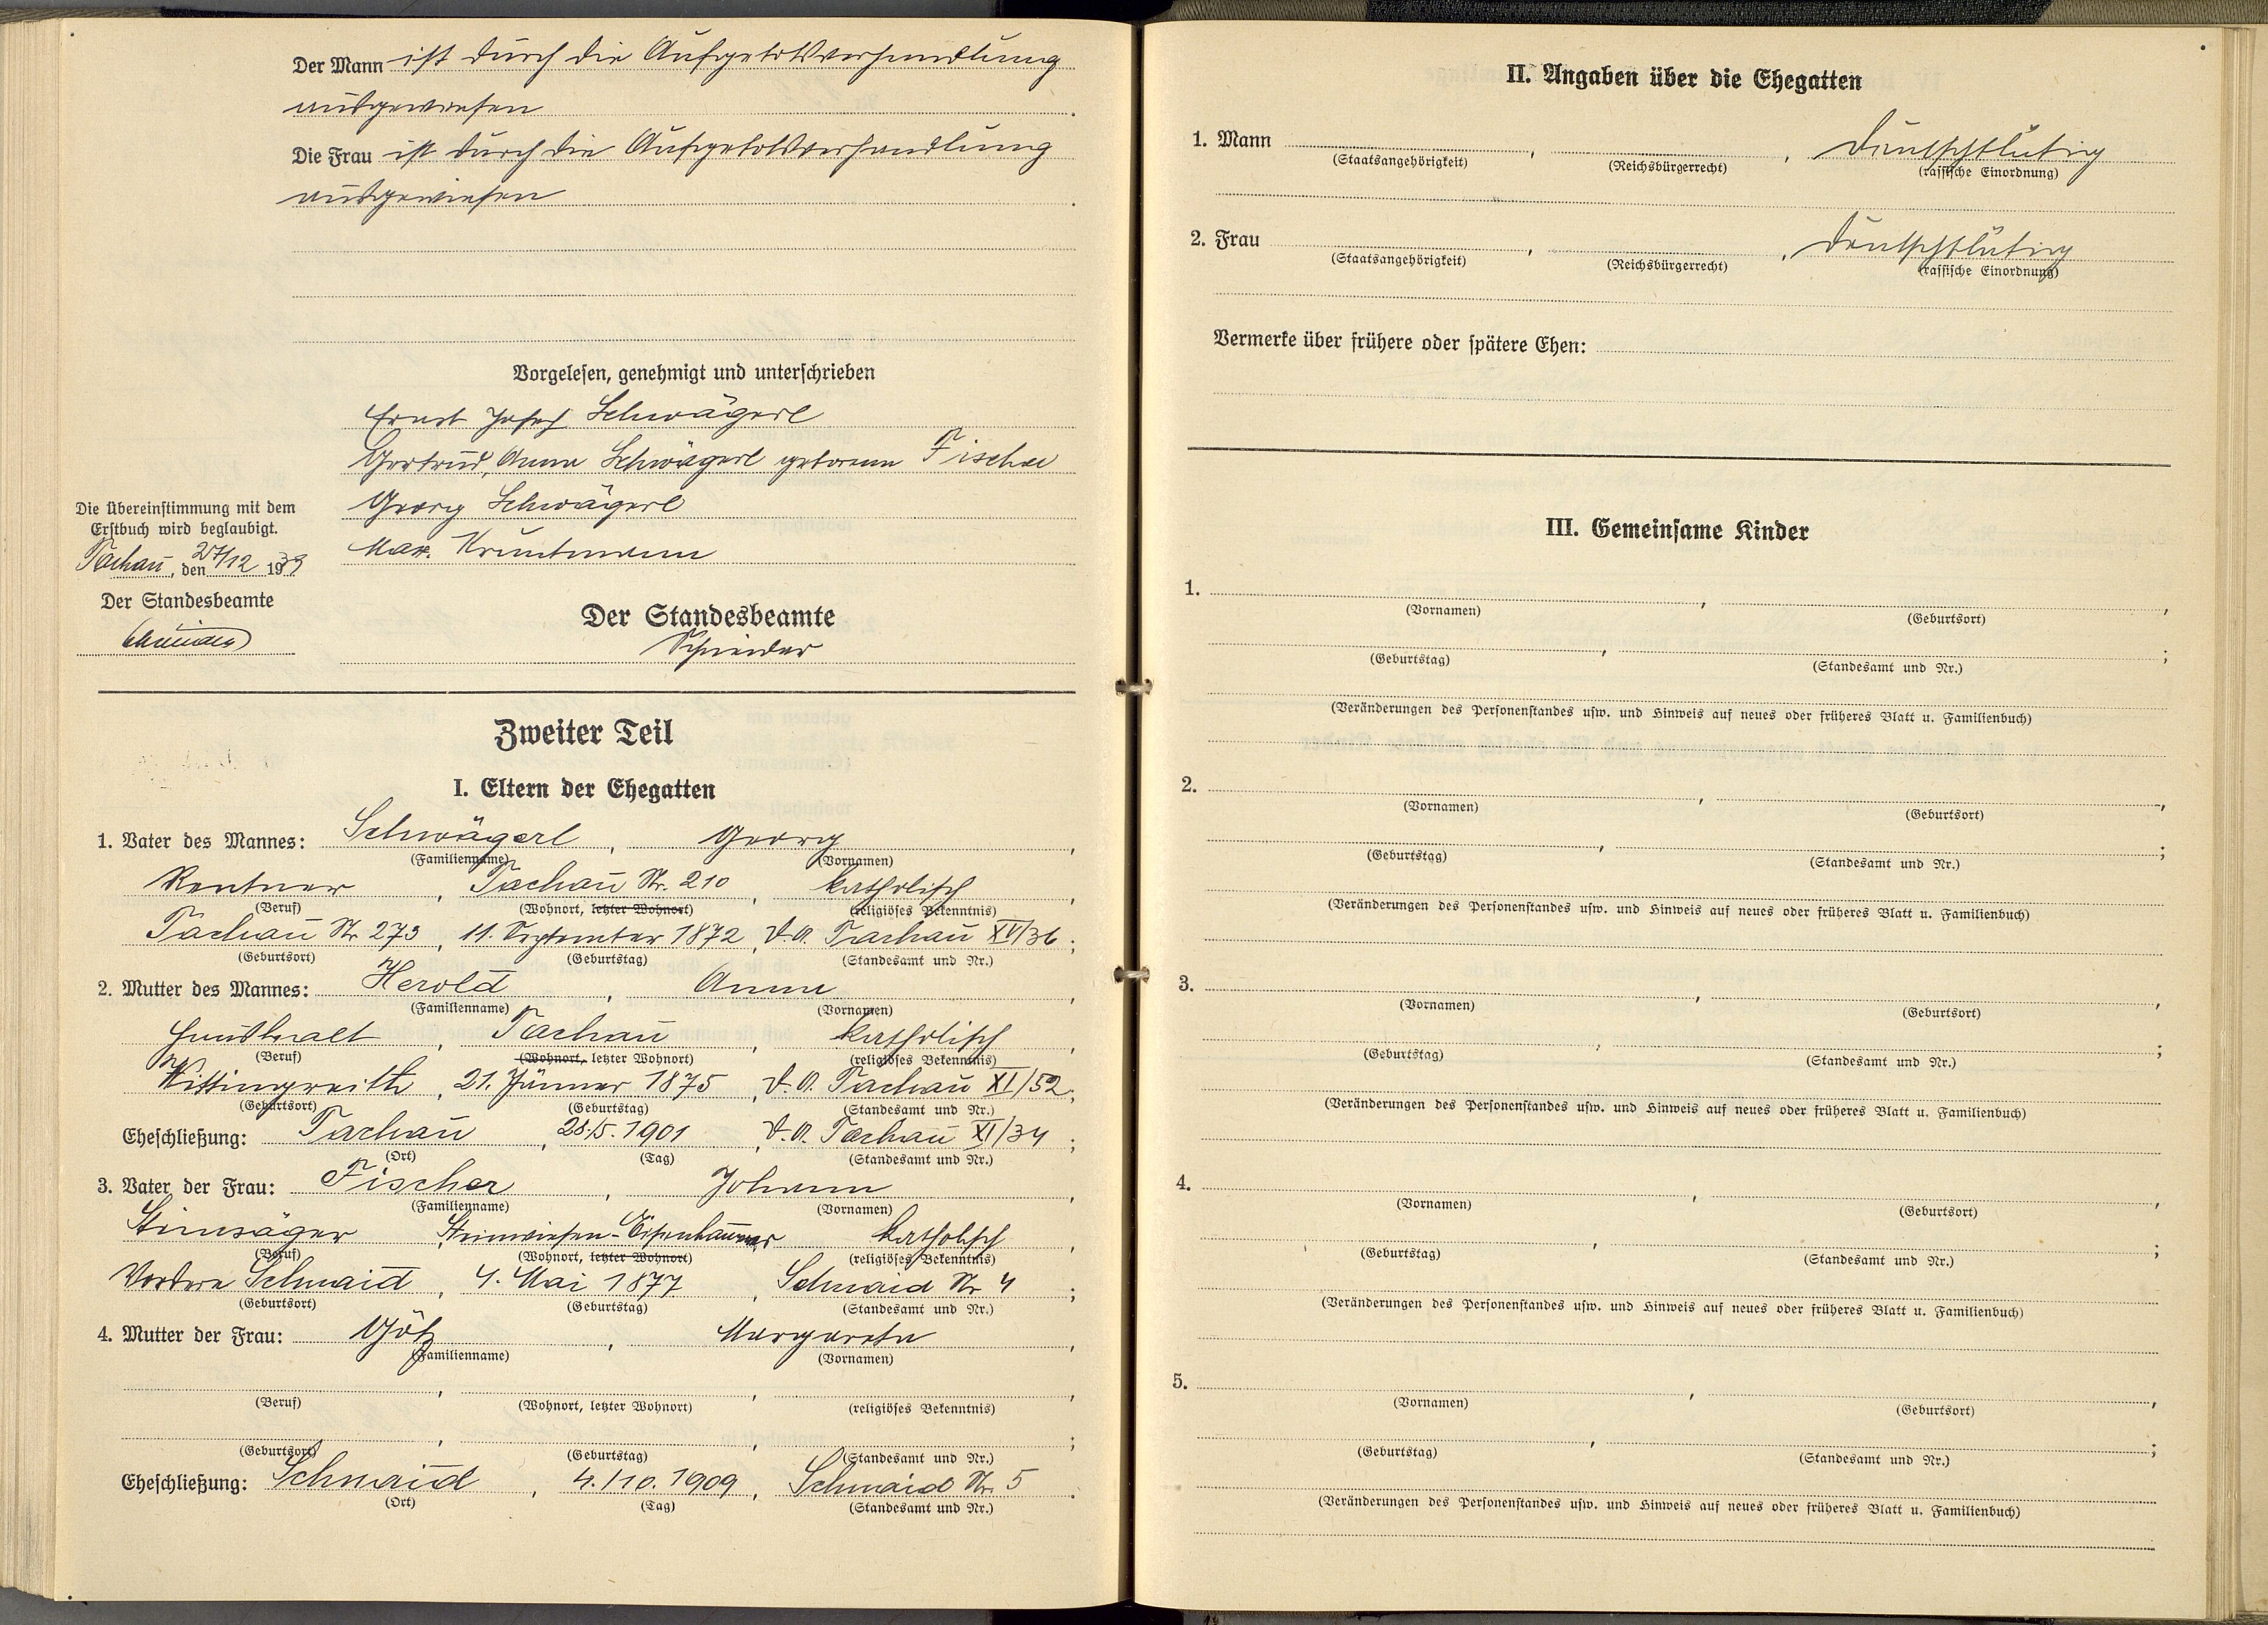 Der Mann ist durch die Aufgebotsverhandlung
ausgewiesen.
Die Frau ist durch die Aufgebotsverhandlung
ausgewiesen.
Vorgelesen, genehmigt und unterschrieben
Ernst Josef Schwägerl
Gertrud, Anna Schwägerl geborene Fischer
Georg Schwägerl
Max
Die Übereinstimmung mit dem
Erstbuch wird beglaubigt.
Tachau, den 27/12 1939
Der Standesbeamte
Schneider
Der Standesbeamte
Schneider
Zweiter Teil
I. Eltern der Ehegatten
1. Vater des Mannes: Schwägerl, Georg,
(Familienname) (Vornamen)
Rentner, Tachau Nr. 210, katholisch,
(Beruf) (Wohnort, letzter Wohnort) (religiöses Bekenntnis)
Tachau Nr 273, 11. September 1872, d. A. Tachau XV/36;
(Geburtsort) (Geburtstag) (Standesamt und Nr.)
2. Mutter des Mannes: Herold, Anna,
(Familienname) (Vornamen)
Haushalt, Tachau, katholisch,
(Beruf) (Wohnort, letzter Wohnort) (religiöses Bekenntnis)
Wittingreith, 21. Jänner 1875, d. A. Tachau XI/52;
(Geburtsort) (Geburtstag) (Standesamt und Nr.)
Eheschließung: Tachau, 28./5. 1901, d. A. Tachau XI/34;
(Ort) (Tag) (Standesamt und Nr.)
3. Vater der Frau: Fischer, Johann,
(Familienname) (Vornamen)
Steinsäger, Steinwiesen-Eisenhammer, katholisch,
(Beruf) (Wohnort, letzter Wohnort) (religiöses Bekenntnis)
Vordere Schmaid, 4. Mai 1877, Schmaid Nr 4;
(Geburtsort) (Geburtstag) (Standesamt und Nr.)
4. Mutter der Frau: Götz, Margareta,
(Familienname) (Vornamen)
(Beruf) (Wohnort, letzter Wohnort) (religiöses Bekenntnis)
(Geburtsort) (Geburtstag) (Standesamt und Nr.)
Eheschließung: Schmaid, 4./10. 1909, Schmaid Nr. 5.
(Ort) (Tag) (Standesamt und Nr.)
II. Angaben über die Ehegatten
1. Mann , , deutschblütig
(Staatsangehörigkeit) (Reichsbürgerrecht) (rassische Einordnung)
2. Frau , , deutschblütig
(Staatsangehörigkeit) (Reichsbürgerrecht) (rassische Einordnung)
Vermerke über frühere oder spätere Ehen:
III. Gemeinsame Kinder
1. , ,
(Vornamen) (Geburtsort)
(Geburtstag) (Standesamt und Nr.)
(Veränderungen des Personenstandes usw. und Hinweis auf neues oder früheres Blatt u. Familienbuch)
2. , ,
(Vornamen) (Geburtsort)
(Geburtstag) (Standesamt und Nr.)
(Veränderungen des Personenstandes usw. und Hinweis auf neues oder früheres Blatt u. Familienbuch)
3. , ,
(Vornamen) (Geburtsort)
(Geburtstag) (Standesamt und Nr.)
(Veränderungen des Personenstandes usw. und Hinweis auf neues oder früheres Blatt u. Familienbuch)
4. , ,
(Vornamen) (Geburtsort)
(Geburtstag) (Standesamt und Nr.)
(Veränderungen des Personenstandes usw. und Hinweis auf neues oder früheres Blatt u. Familienbuch)
5. , ,
(Vornamen) (Geburtsort)
(Geburtstag) (Standesamt und Nr.)
(Veränderungen des Personenstandes usw. und Hinweis auf neues oder früheres Blatt u. Familienbuch)